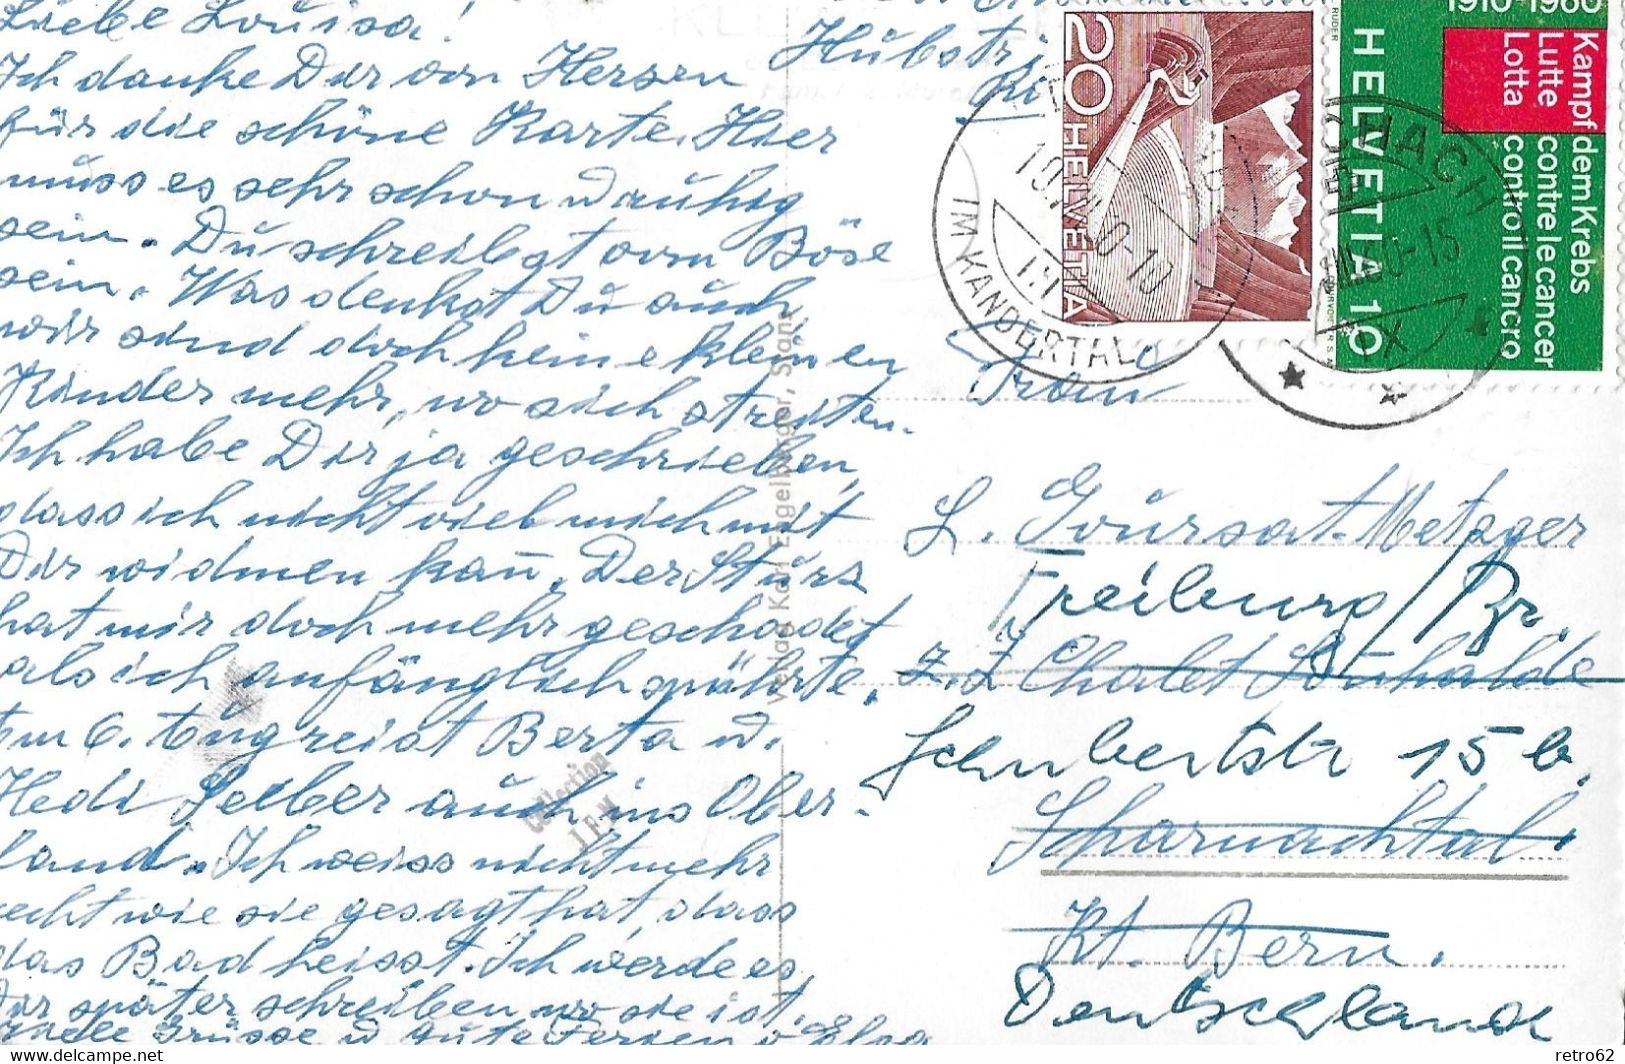 Liebe Louisa!
Ich danke Dir von Herzen
für die schöne Karte. Hier
muss es sehr schon u ruhig
sein. Du schreibst vom Böse
sein. Was denkst Du auch
wir sind doch keine kleinen
Kinder mehr, wo sich streiten.
Ich habe Dir ja geschrieben,
dass ich nicht viel mich mit
Dir widmen kan̄. Der Sturz
hat mir doch mehr geschadet
als ich anfänglich spührte.
Am 6. Aug reist Berta u.
Hedi Leiber auch ins Ober-
land. Ich weiss nicht mehr
recht wie sie gesagt hat, dass
das Bad heisst. Ich werde es
Dir später schreiben wo sie ist.
Viele Grüsse u gute Ferien v. Elsa
Verlag Karl Engelberger, Stans
Collection
20 HELVETIA
IM KANDERTAL
1910-1960
Kampf dem Krebs
Lutte contre le cancer
Lotta contro il cancro
HELVETIA 10
RUDER
Frau
L. Goursat-Metzger
Freiburg/Br.
z.Z Chalet Bruhalde
Schubertstr 15 b.
Scharnachtal.
Kt. Bern.
Deutschland
The Delcampe item
retro62